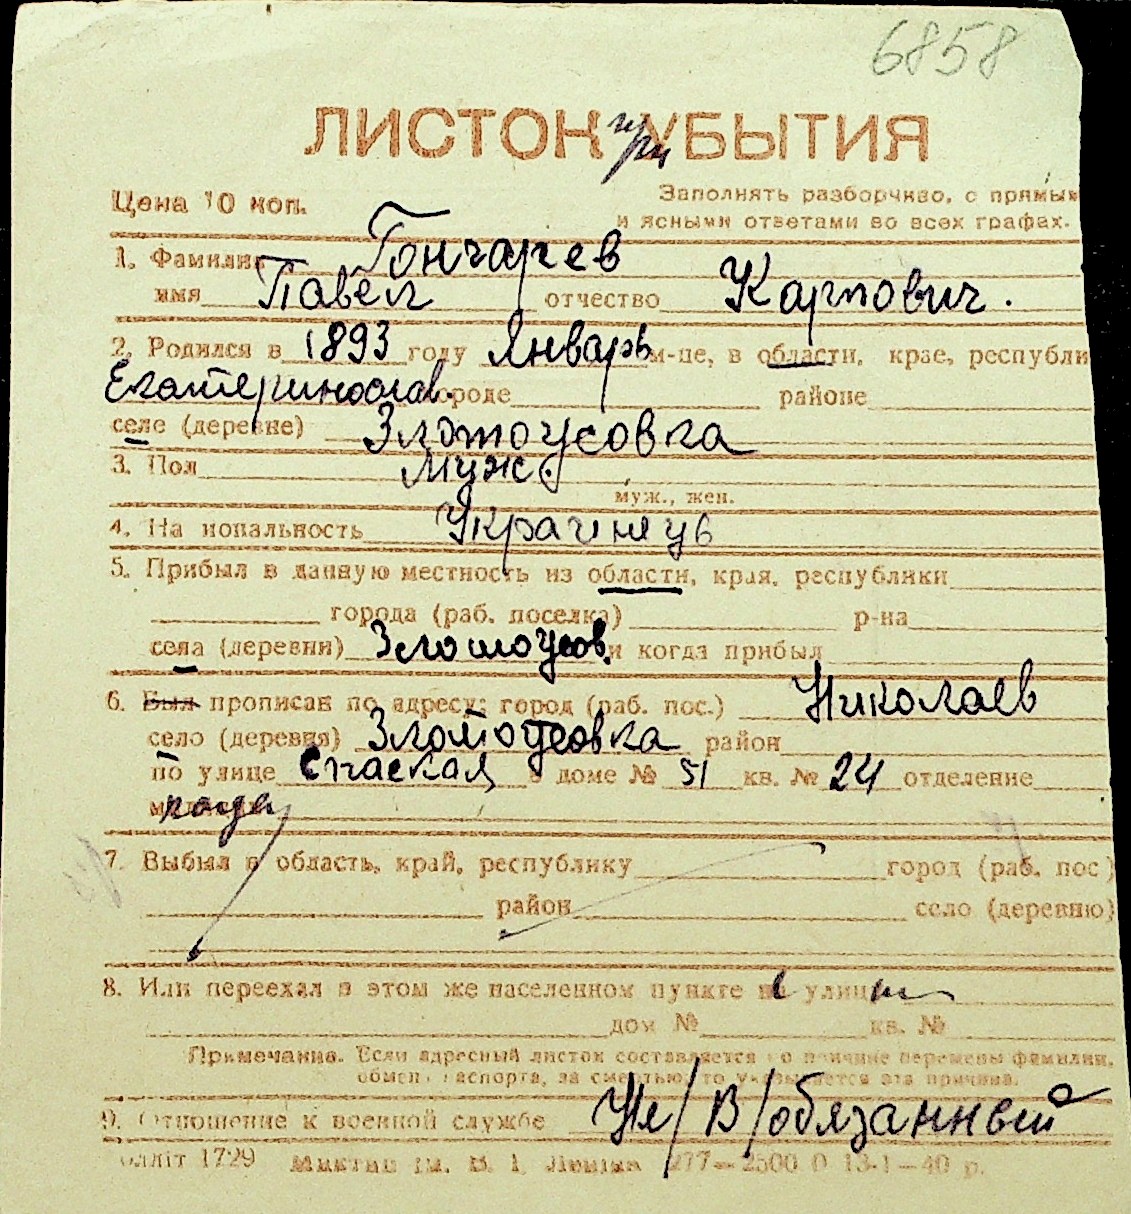 6858
ЛИСТОК при УБЫТИЯ
Цена 10 коп.
Заполнять разборчиво, с прямым
и ясными ответами во всех графах.
1. Фамилия Гончарев
имя Павел отчество Карпович.
2. Родился в 1893 году Январь м-це, в области, крае, республи
Екатеринослав. городе районе
селе (деревне) Злотоусовка
3. Пол муж.
муж., жен.
4. На иональность Украинец
5. Прибыл в данную местность из области, края, республики
города (раб. поселка) р-на
села (деревни) Злотоусов. и когда прибыл
6. Был прописан по адресу: город (раб. пос.) Николаев
село (деревня) Злотоусовка район
по улице Спаская в доме № 51 кв. № 24 отделение
7. Выбыл в область, край, республику город (раб. пос)
район село (деревню)
8. Или переехал в этом же населенном пункте улиц
дом № кв. №
Примечание. Если адресный листок составляется по причине перемены фамилии,
обмен паспорта, за смертью, то указывается эта причина.
9. Отношение к военной службе Не/В/обязанный
олліт 1729 Миктип ім. В. І. Леніна 277—2500 0 13-1—40 р.